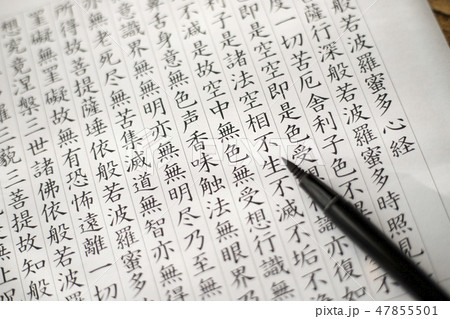 般若波羅蜜多心経
薩行深般若波羅蜜多時照見
度一切苦厄舎利子色不異
即是空空即是色受想識亦復如
利子是諸法空相不生不滅不垢不
不滅是故空中無色無受想行識無
舌身意無色声香味触法無眼界乃
意識界無無明亦無無明尽乃至無
亦無老死尽無苦集滅道無智亦無得
所得故菩提薩埵依般若波羅蜜
罣礙無罣礙故無有恐怖遠離一切
想究竟涅槃三世諸佛依般若波
藐三菩提故知般
無上
47855501